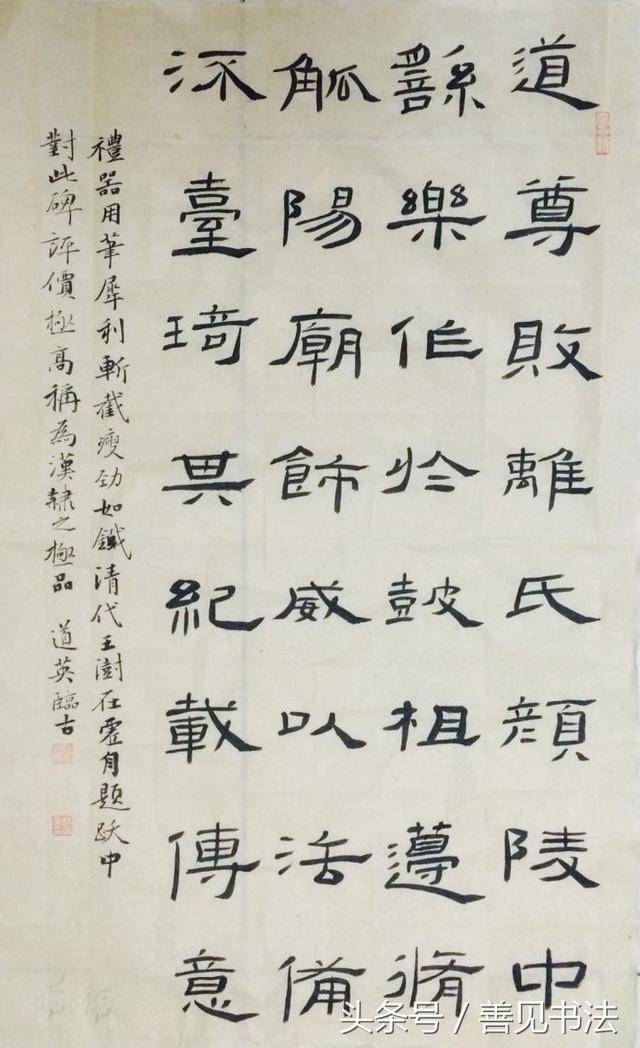 道尊敗離氏顔陵中
樂作於皷祖遵脩
觚陽廟飾威以活備
臺琦異紀載傳意
禮器用筆犀利斬截瘦勁如鐵清代王澍在虛舟題跋中
對此碑評價極高稱為漢隸之極品 道英臨古
头条号 / 善见书法